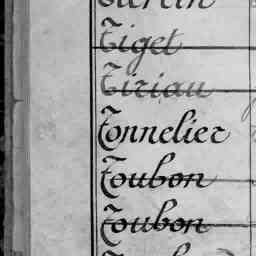 Tiget
Tiriau
Tonnelier
Toubon
Toubon